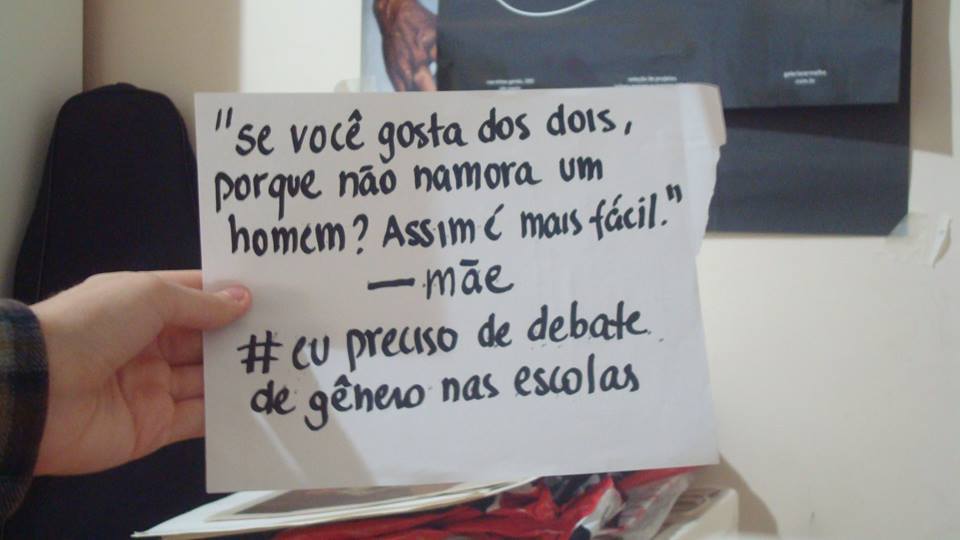 "se você gosta dos dois,
porque não namora um
homem? Assim é mais fácil."
— mãe
# eu preciso de debate
de gênero nas escolas